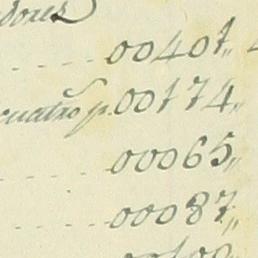 dores
00401„
cuatro p. 00174„
00065„
00087„